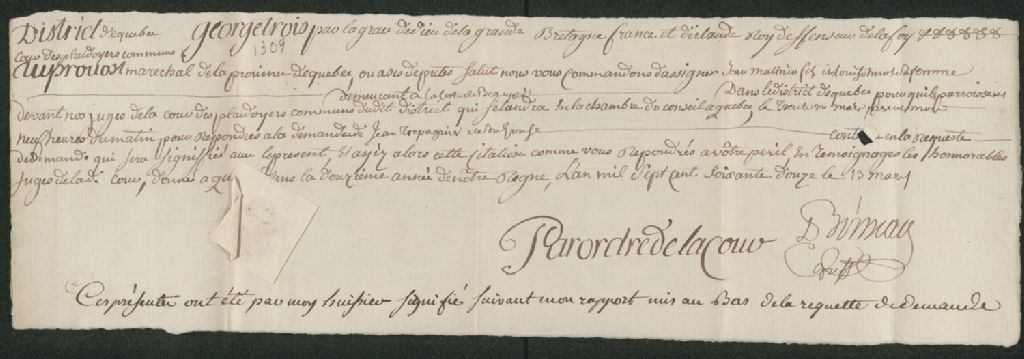 District dequebec George trois par la grace de dieu de la grande Bretagne france et dirlande Roy deffenseur de la foy &&&&&&
Cour des plaidoyers communs 1309
Au provost marechal de la province de quebec, ou a ses deputés Salut nous vous Commandons dassigner Jean mathieu fils et sa femme
demeurant a la Coste de Beaupré Dans le district de quebec pour quils paroissent
devant nos juges de la cour des plaidoyers communs dudit District qui se tandra en la chambre du conseil a quebec le trente un mars
neuf heures du matin, pour Repondre a la demande de Jean Trepagnier et son Epouse contenue en la Requeste
de demande qui sera signiffié avec le present, Et ayéz alors cette sitation comme vous Repondrés a votre peril En temoignages les honnorables
juges de la de. cour, donné a que dans la douzieme année de notre Regne, L'an mil sept cent soixante douze le 13 mars
Par ordre de la Cour
Greff
Ces presentes ont été par moy huissier signifié suivant mon rapport mis au Bas de la requette de demande